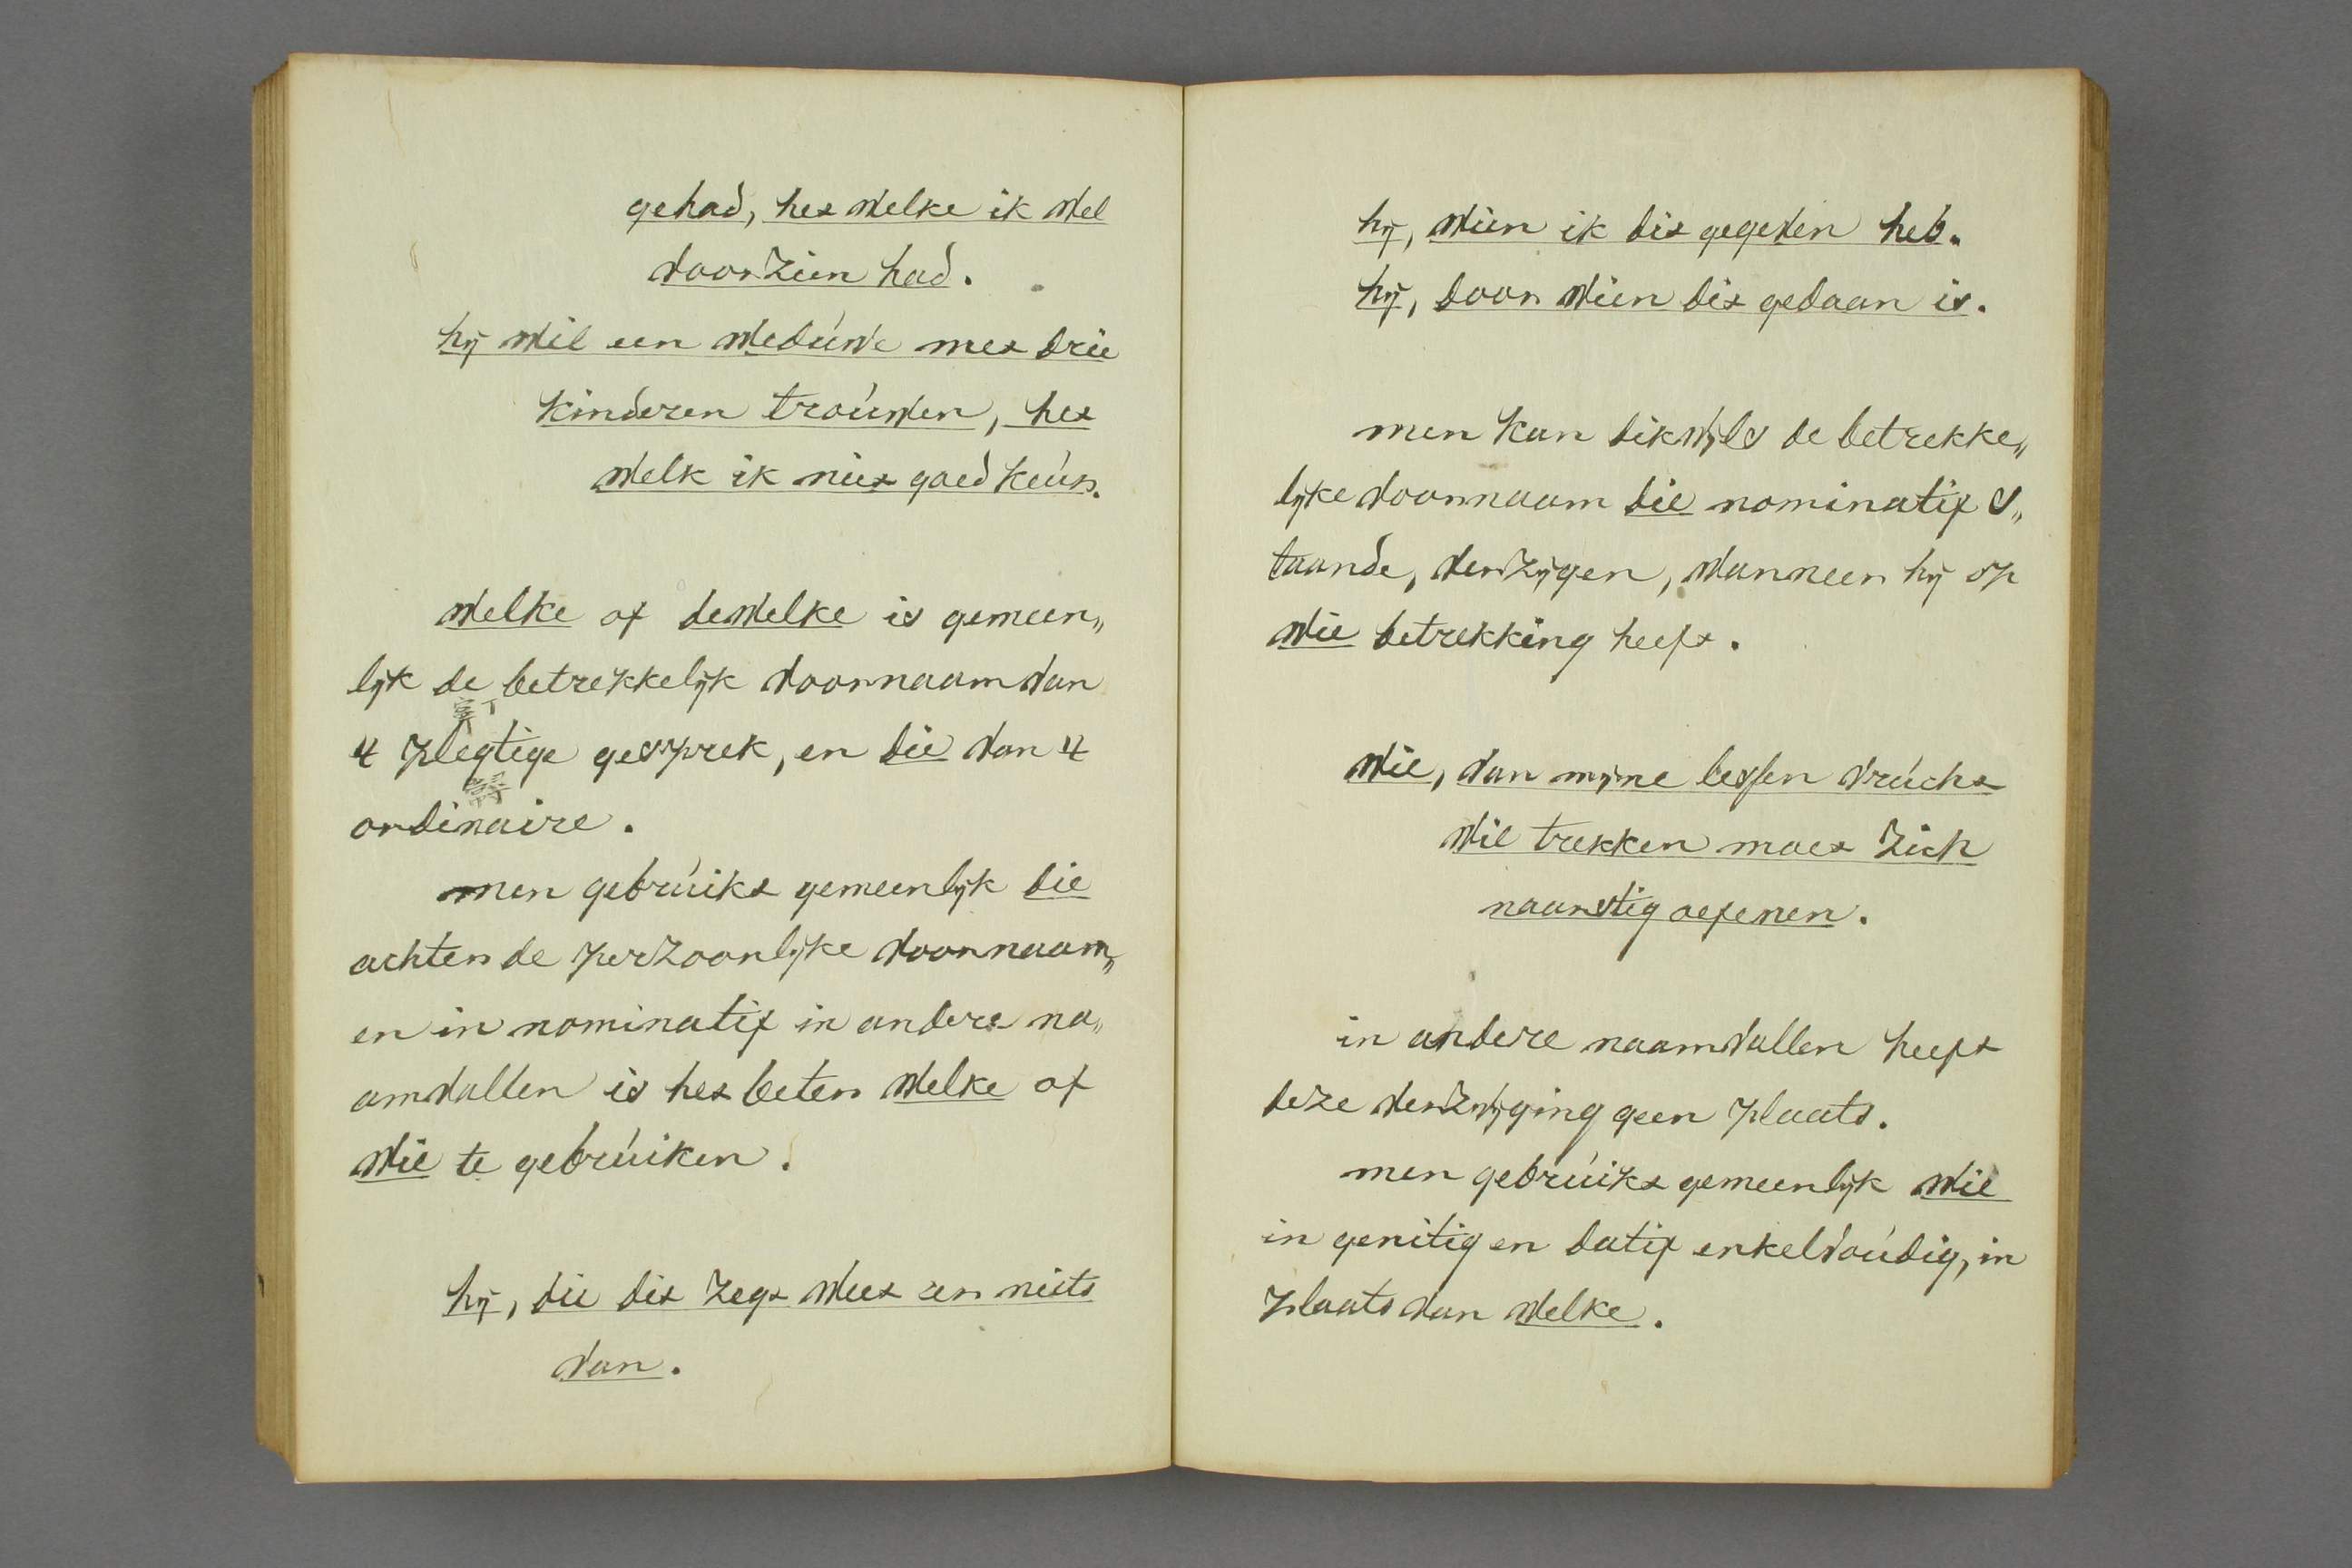 gehad, het welke ik wel
voorzien had.
hij wil een weduwe met drie
kinderen trouwen, het
welk ik niet goed keur.
welke of dewelke is gemeen„
lijk de betrekkelijk voornaam van
't plegtige gesprek, en die van 't
ordinaire.
men gebruikt gemeenlijk die
achter de perzoonlijke voornaam„
en in nominatif in andere na„
amvallen is het beter welke of
wie te gebruiken.
hij, die dit zegt weet er niets
van.
hij, wien ik dit gegeven heb.
hij, door wien dit gedaan is.
men kan dikwijls de betrekke„
lijke voornaam die nominatif s„
taande, verzijgen, wanneer hij op
wie betrekking heeft.
wie, van mijne lessen vrucht
wil trekken moet zich
naarstig oefenen.
in andere naamvallen heeft
deze verzwijging geen plaats.
men gebruikt gemeenlijk wie
in genitig en datif enkelvoudig, in
plaats van welke.